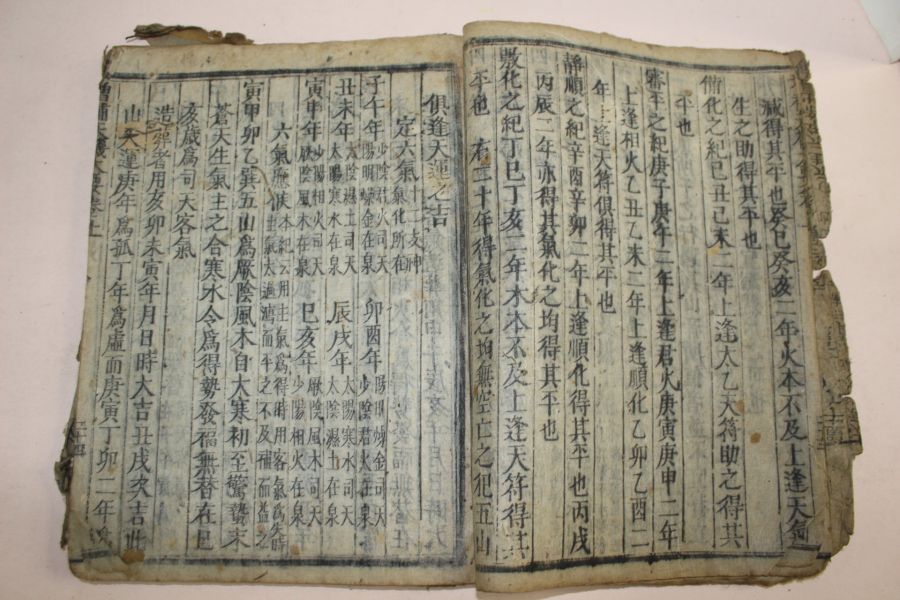 減得其平也癸巳癸亥二年火本不及上逢天氣
生之助得其平也
備化之紀己丑己未二年上逢太乙天符助之得其
平也
審平之紀庚子庚午二年上逢君火庚寅庚申二年
上逢相火乙丑乙未二年上逢順化乙卯乙酉二
年上逢天符俱得其平也
靜順之紀辛酉辛卯二年上逢順化得其平也丙戌
丙辰二年亦得其氣化之均得其平也
敷化之紀丁巳丁亥二年木本不及上逢天符得其
平也 右三十年得氣化之均無空亡之犯五山
俱逢天運之吉
定六氣
氣化所在
十二支神
子午年 少陰君火司天 陽明燥金在泉 卯酉年 陽明燥金司天 少陰君火在泉
丑未年 太陰濕土司天 太陽寒水在泉 辰戌年 太陽寒水司天 太陰濕土在泉
寅申年 少陽相火司天 厥陰風木在泉 巳亥年 厥陰風木司天 少陽相火在泉
六氣應候 本紀云用主氣爲得時用客氣爲失時
主氣太過瀉而平之不及補而益之
寅甲卯乙巽五山爲厥陰風木自大寒初至驚蟄末
蒼天生氣主之合寒水令爲得勢發福無替在巳
亥歲爲司天客氣
造葬者用亥卯未寅年月日時大吉丑戌次吉此
山天運庚年爲孤丁年爲虛而庚寅丁卯二年
二十四